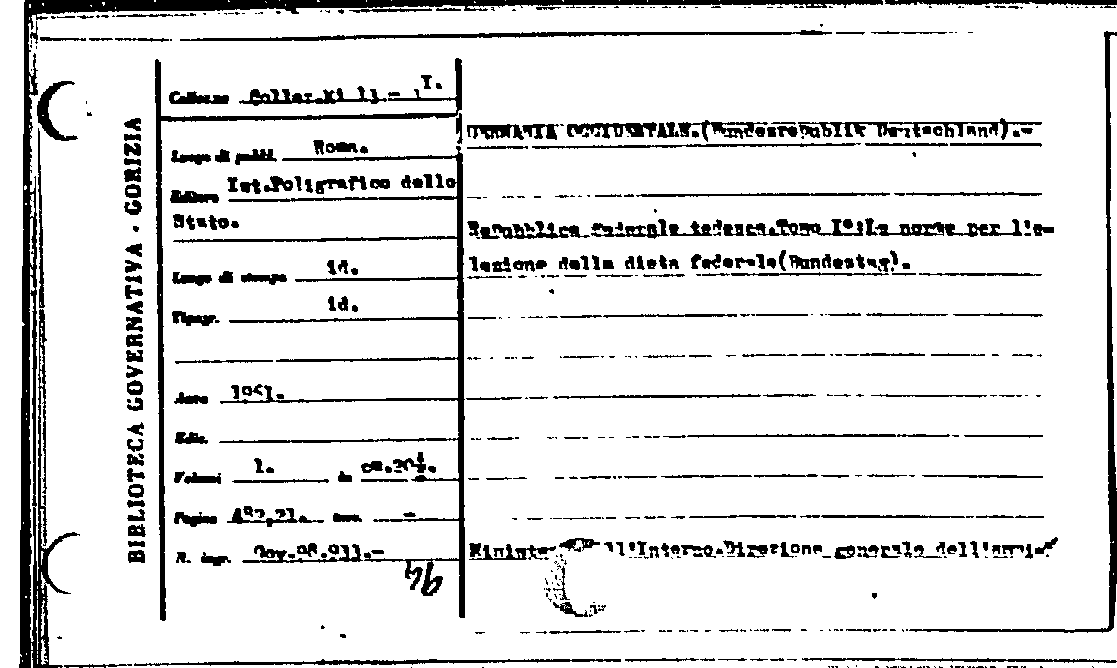 BIBLIOTECA GOVERNATIVA - GORIZIA
Collocaz. Collez.
I.
Luogo di pubbl. Roma.
Editore Ist.Poligrafico dello
Stato.
Luogo di stampa id.
Tipogr. id.
Anno
Ediz.
Volumi 1. in cm.20½.
Pagine tav. -
N. ingr. Gov.
94
OCCIDENTALE.(Bundesrepublik Deutschland).-
Repubblica federale tedesca.Tomo I°:Le norme per l'e-
lezione della dieta federale(Bundestag).
ll'Interno.Direzione generale dell'ammi-